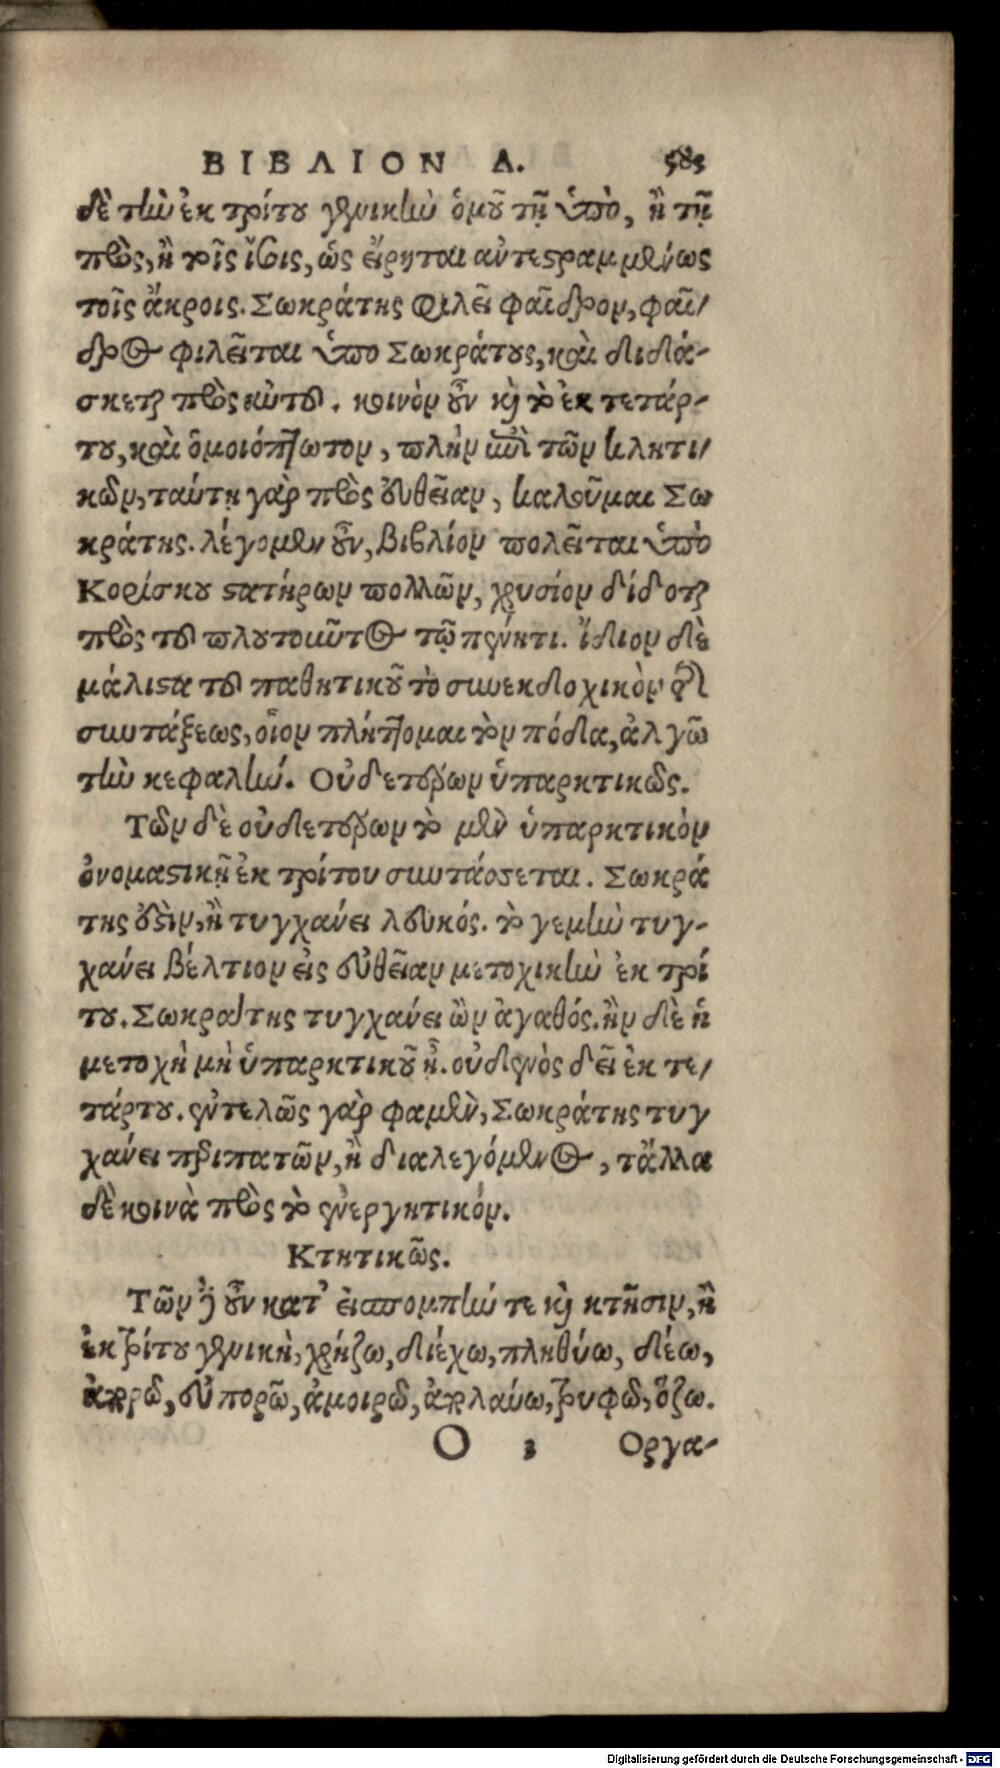 ΒΙΒΛΙΟΝ Δ.
δὲ τὴν ἐκ τρίτου γενικὴν ὁμοῦ τῇ ὑπὸ, ἢ τῇ
πρὸς, ἢ τρὶς ἴβις, ὡς εἴρηται ἀντεστραμμένως
τοῖς ἄκροις. Σωκράτης φιλεῖ φαῖδρον, φαῖ/
δρος φιλεῖται ὑπο Σωκράτους, καὶ διδά-
σκεται πρὸς αὐτοῦ. κοινὸν οὖν καὶ τὸ ἐκ τετάρ-
του, καὶ ὁμοιόπτωτον, πλὴν ἐπὶ τῶν κλητι/
κῶν, ταύτῃ γὰρ πρὸς εὐθεῖαν, καλοῦμαι Σω
κράτης. λέγομεν οὖν, βιβλίον πολεῖται ὑπὸ
Κορίσκου στατήρων πολλῶν, χρυσίον δίδοται
πρὸς τοῦ πλουτοῦντος τῷ πένητι. ἴδιον δὲ
μάλιστα τοῦ παθητικοῦ τὸ συνεκδοχικὸν
συντάξεως, οἷον πλήττομαι τὸν πόδα, ἀλγῶ
τὴν κεφαλήν. Οὐδετέρων ὑπαρκτικῶς.
Τῶν δὲ οὐδετέρων τὸ μὲν ὑπαρκτικὸν
ὀνομαστικῇ ἐκ τρίτου συντάσσεται. Σωκρά
της ἐστὶν, ἢ τυγχάνει λευκός. τὸ γεμὴν τυγ-
χάνει βέλτιον εἰς εὐθεῖαν μετοχικὴν ἐκ τρί
του. Σωκράτης τυγχάνει ὢν ἀγαθός. ἢν δὲ ἡ
μετοχὴ μὴ ὑπαρκτικοῦ ᾖ. οὐδενὸς δεῖ ἐκ τε/
τάρτου. ἐντελῶς γὰρ φαμὲν, Σωκράτης τυγ
χάνει περιπατῶν, ἢ διαλεγόμενος, τἄλλα
δὲ κοινὰ πρὸς τὸ ἐνεργητικόν.
Κτητικῶς.
Τῶν δὲ οὖν κατ' εἰσπομπήν τε καὶ κτῆσιν, ἢ
ἐκ τρίτου γενικὴ, χρήζω, διέχω, πληθύω, δέω,
ἀπορῶ, εὐπορῶ, ἀμοιρῶ, ἀπολαύω, τρυφῶ, ὄζω.
Ο 3 Οργα-